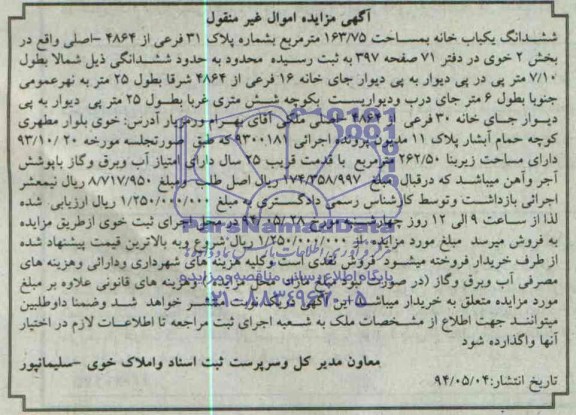 آگهی مزایده اموال غیر منقول
ششدانگ یکباب خانه بمساحت ۱۶۳/۷۵ مترمربع بشماره پلاک ۳۱ فرعی از ۴۸۶۴ -اصلی واقع در
بخش ۲ خوی در دفتر ۷۱ صفحه ۳۹۷ به ثبت رسیده محدود به حدود ششدانگی ذیل شمالا بطول
۷/۱۰ متر پی در پی دیوار به پی دیوار جای خانه ۱۶ فرعی از ۴۸۶۴ شرقا بطول ۲۵ متر به نهرعمومی
جنوبا بطول ۶ متر جای درب ودیواریست بکوچه شش متری غربا بطول ۲۵ متر پی دیوار به پی
دیوار جای خانه ۳۰ فرعی از ۴۸۶۴ -اصلی ملکی آقای بهرام ورمزیار آدرس: خوی بلوار مطهری
کوچه حمام آبشار پلاک ۱۱ مدیون پرونده اجرائی ۹۳۰۰۱۸۱ که طبق صورتجلسه مورخه ۹۳/۱۰/۲۰
دارای مساحت زیربنا ۲۶۲/۵۰ مترمربع با قدمت قریب ۲۵ سال دارای امتیاز آب وبرق وگاز باپوشش
آجر وآهن میباشد که درقبال مبلغ ۱۷۴/۳۵۸/۹۹۷ ریال اصل طلب ومبلغ ۸/۷۱۷/۹۵۰ ریال نیمعشر
اجرائی بازداشت وتوسط کارشناس رسمی دادگستری به مبلغ ۱/۲۵۰/۰۰۰/۰۰۰ ریال ارزیابی شده
لذا از ساعت ۹ الی ۱۲ روز چهارشنبه مورخ ۹۴/۰۵/۲۸ در محل اجرای ثبت خوی ازطریق مزایده
به فروش میرسد مبلغ مورد مزایده از ۱/۲۵۰/۰۰۰/۰۰۰ ریال شروع وبه بالاترین قیمت پیشنهاد شده
از طرف خریدار فروخته میشود فروش نقدی است وکلیه هزینه های شهرداری ودارائی وهزینه های
مصرفی آب وبرق وگاز (در صورت نبود مبلغ مازاد محل مزایده) وهزینه های قانونی علاوه بر مبلغ
مورد مزایده متعلق به خریدار میباشد این آگهی دریک نوبت منتشر خواهد شد وضمنا داوطلبین
میتوانند جهت اطلاع از مشخصات ملک به شعبه اجرای ثبت مراجعه تا اطلاعات لازم در اختیار
آنها واگذارده شود
معاون مدیر کل وسرپرست ثبت اسناد واملاک خوی -سلیمانپور
تاریخ انتشار:۹۴/۰۵/۰۴
ParsNamadData
پایگاه اطلاع رسانی مناقصه و مزایده
۰۲۱-۸۸۳۴۹۶۷۰-۵